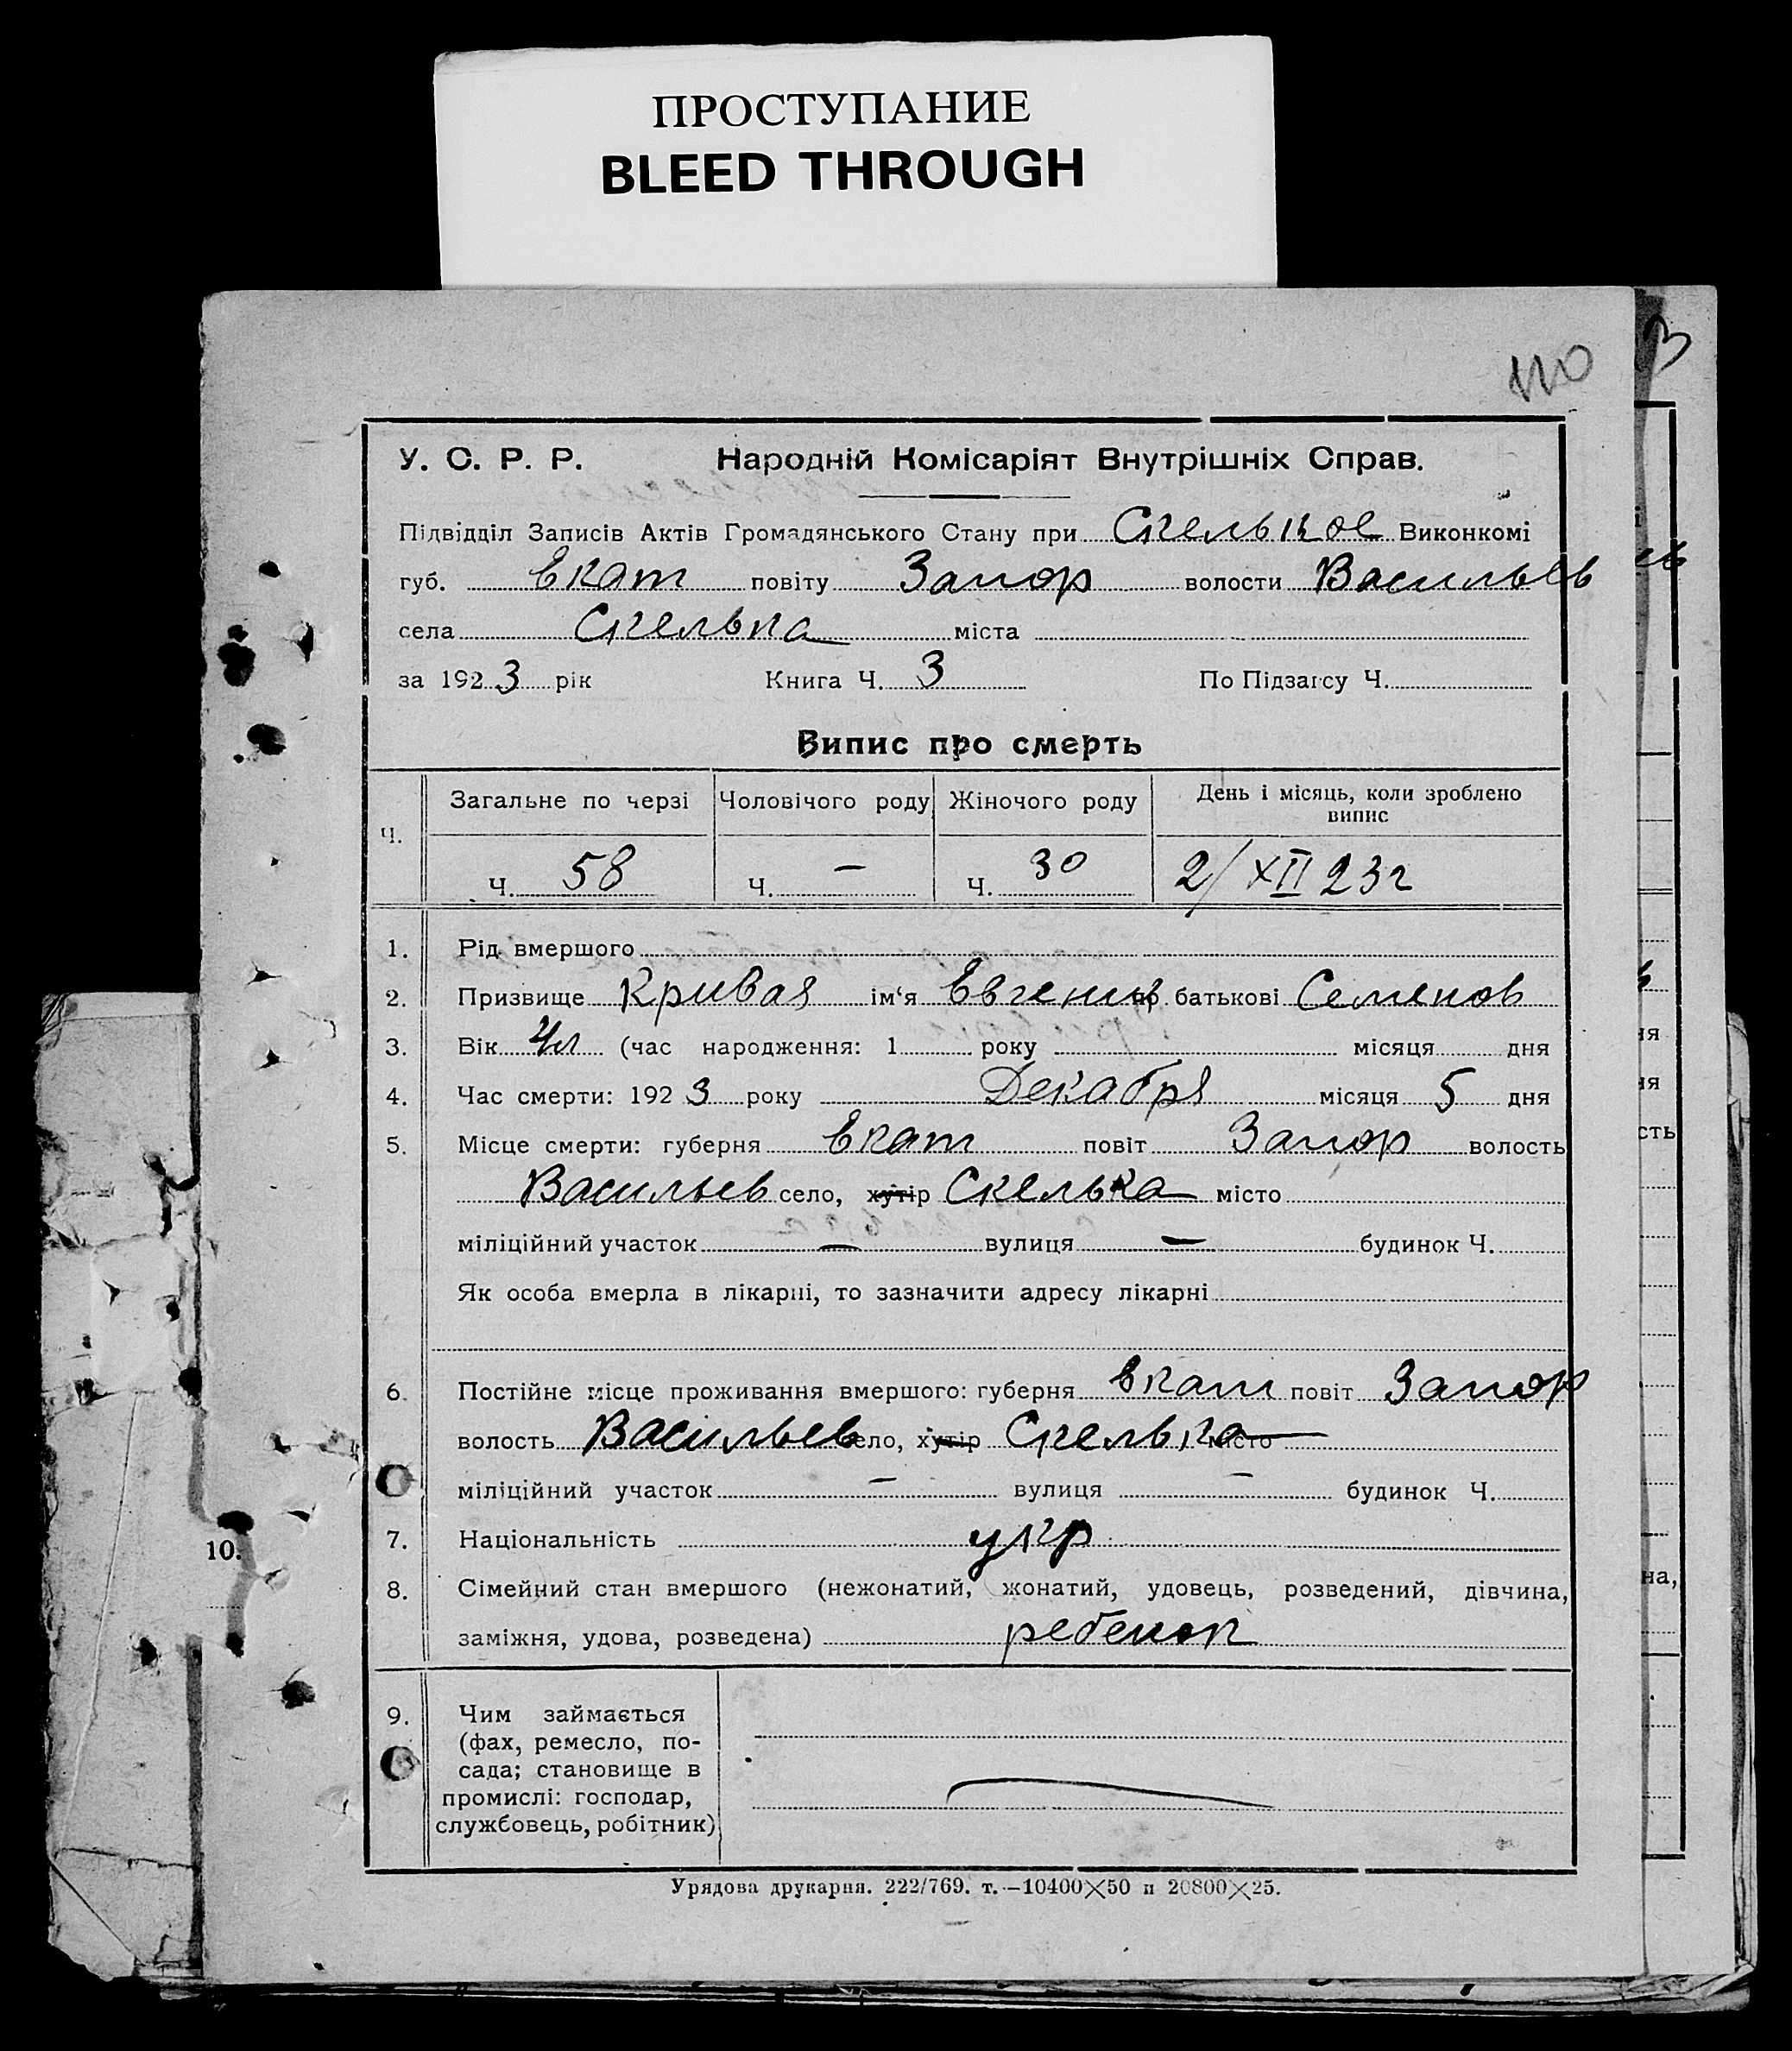 ПРОСТУПАНИЕ
BLEED THROUGH
110
У. С. Р. Р. Народній Комісаріят Внутрішніх Справ.
Підвідділ Записів Актів Громадянського Стану при Скелькое Виконкомі
губ. Екат повіту Запор волости Васильев
села Скелька міста
за 1923 рік Книга Ч. 3 По Підзагсу Ч.
Випис про смерть
Ч. Загальне по черзі Чоловічого роду Жіночого роду День і місяць, коли зроблено
випис
Ч. 58 Ч. — Ч. 30 2/XII 23г
1. Рід вмершого
2. Призвище Кривая ім‘я Евгения по батькові Семенов
3. Вік 4л (час народження: 1 року місяця дня
4. Час смерти: 1923 року Декабря місяця 5 дня
5. Місце смерти: губерня Екат повіт Запор волость
Васильев село, хутір Скелька місто
міліційний участок — вулиця — будинок Ч.
Як особа вмерла в лікарні, то зазначити адресу лікарні
6. Постійне місце проживання вмершого: губерня Екат повіт Запор
волость Васильев село, хутір Скелька місто
міліційний участок — вулиця — будинок Ч.
7. Національність укр
10.
8. Сімейний стан вмершого (нежонатий, жонатий, удовець, розведений, дівчина,
заміжня, удова, розведена) ребенок
9. Чим займається
(фах, ремесло, по-
сада; становище в
промислі: господар,
службовець, робітник)
Урядова друкарня. 222/769. т.—10400×50 п 20800×25.